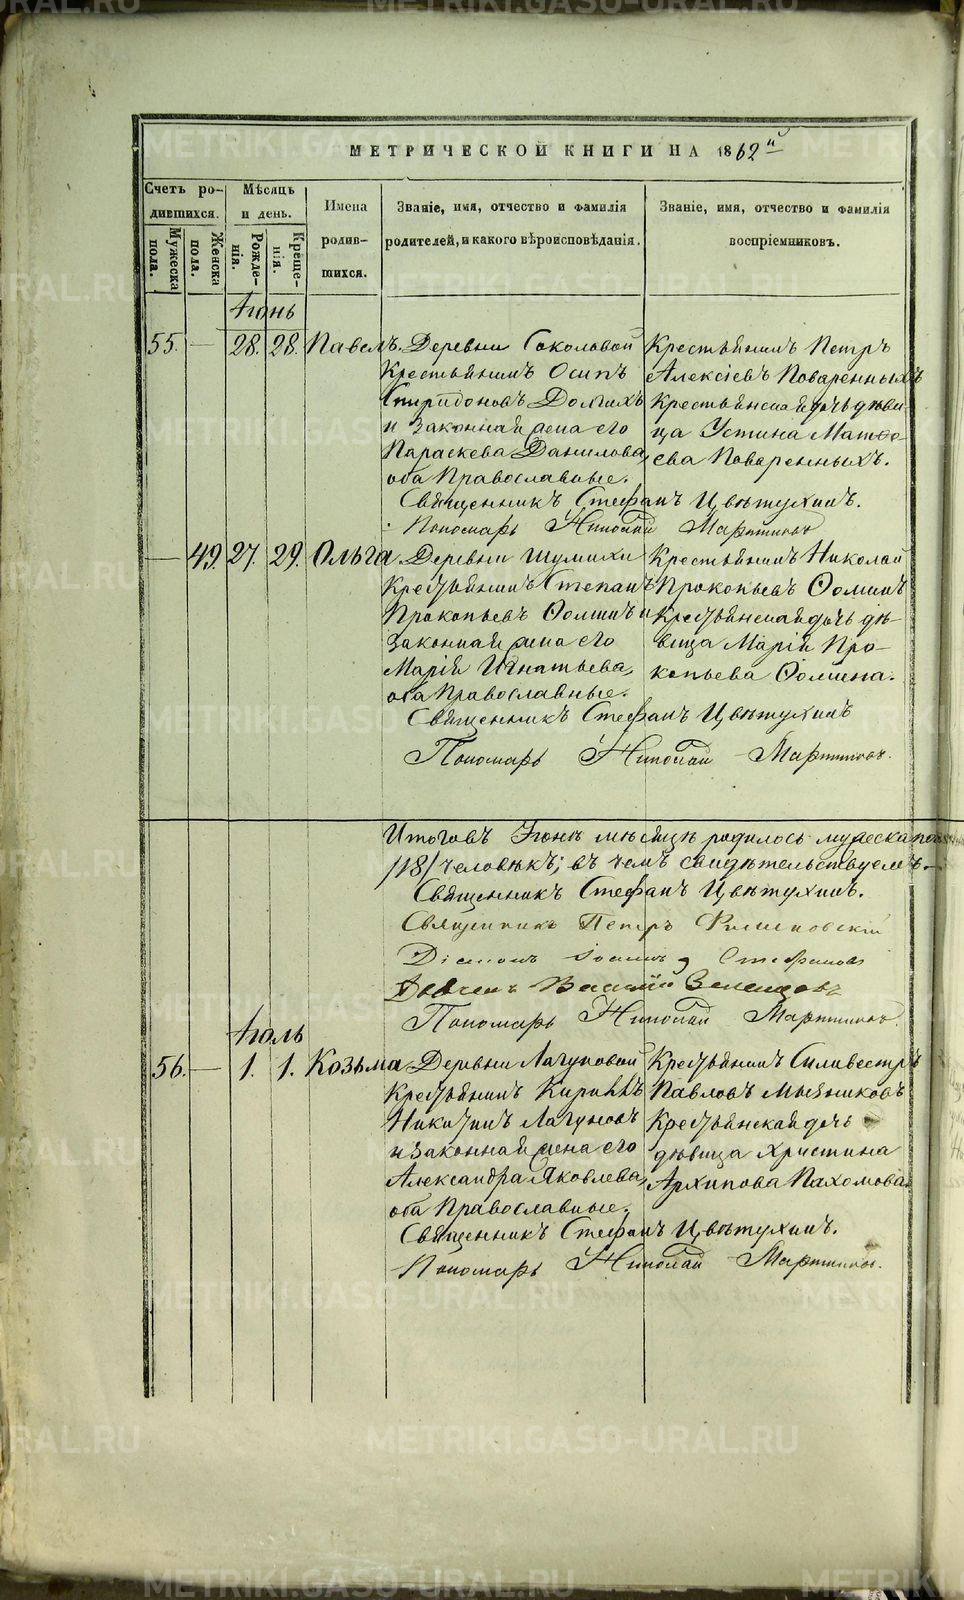 МЕТРИЧЕСКОЙ КНИГИ НА 1862й
Счетъ родившихся.
Мѣсяць и день.
Имена родившихся.
Званіе, имя, отчество и фамилія родителей, и какого вѣроисповѣданія.
Званіе, имя, отчество и фамилія воспріемниковъ.
Мужеска пола.
Женска пола.
Рожденія.
Крещенія.
Іюнь
55. — 28. 28. Павелъ.
Деревни Соколовой
Крестьянинъ Осипъ
Спиридоновъ Долгихъ
и законная жена его
Параскева Данилова,
оба Православные.
Крестьянинъ Петръ
Алексіевъ Поваренныхъ
Крестьянская дочь дѣви-
ца Устина Матѳе-
ева Поваренныхъ.
Священникъ Стефанъ Цвѣтухинъ.
Пономарь Николай Мартиновъ
— 49. 27. 29. Ольга
Деревни Шумихи
Крестьянинъ Степанъ
Прокопьевъ Ѳоминъ и
законная жена его
Марія Игнатьева,
оба Православные.
Крестьянинъ Николай
Прокопьевъ Ѳоминъ
Крестьянская дочь дѣ-
вица Марія Про-
копьева Ѳомина.
Священникъ Стефанъ Цвѣтухинъ
Пономарь Николай Мартиновъ.
Итоговъ Іюнѣ мѣсяцѣ родилось мужеска пола
/18/ человѣкъ; въ чемъ свидѣтельствуемъ.
Священникъ Стефанъ Цвѣтухинъ.
Священникъ Петръ
Діаконъ Іоаннъ Стефановъ
Василій
Пономарь Николай Мартиновъ.
Іюль
56. — 1. 1. Козьма
Деревни Лагуновой
Крестьянинъ Кириллъ
Никитинъ Лагуновъ
и законная жена его
Александра Яковлева,
оба Православные.
Крестьянинъ Силивестръ
Павловъ Мызниковъ
Крестьянская дочь
дѣвица Христина
Архипова Пахомова.
Священникъ Стефанъ Цвѣтухинъ.
Пономарь Николай Мартиновъ.
METRIKI.GASO-URAL.RU